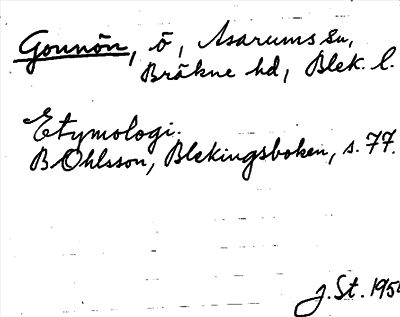 Gonnön, ö, Asarums sn,
Bräkne hd, Blek. l.
Etymologi.
B Ohlsson, Blekingsboken, s. 77.
J. St. 195